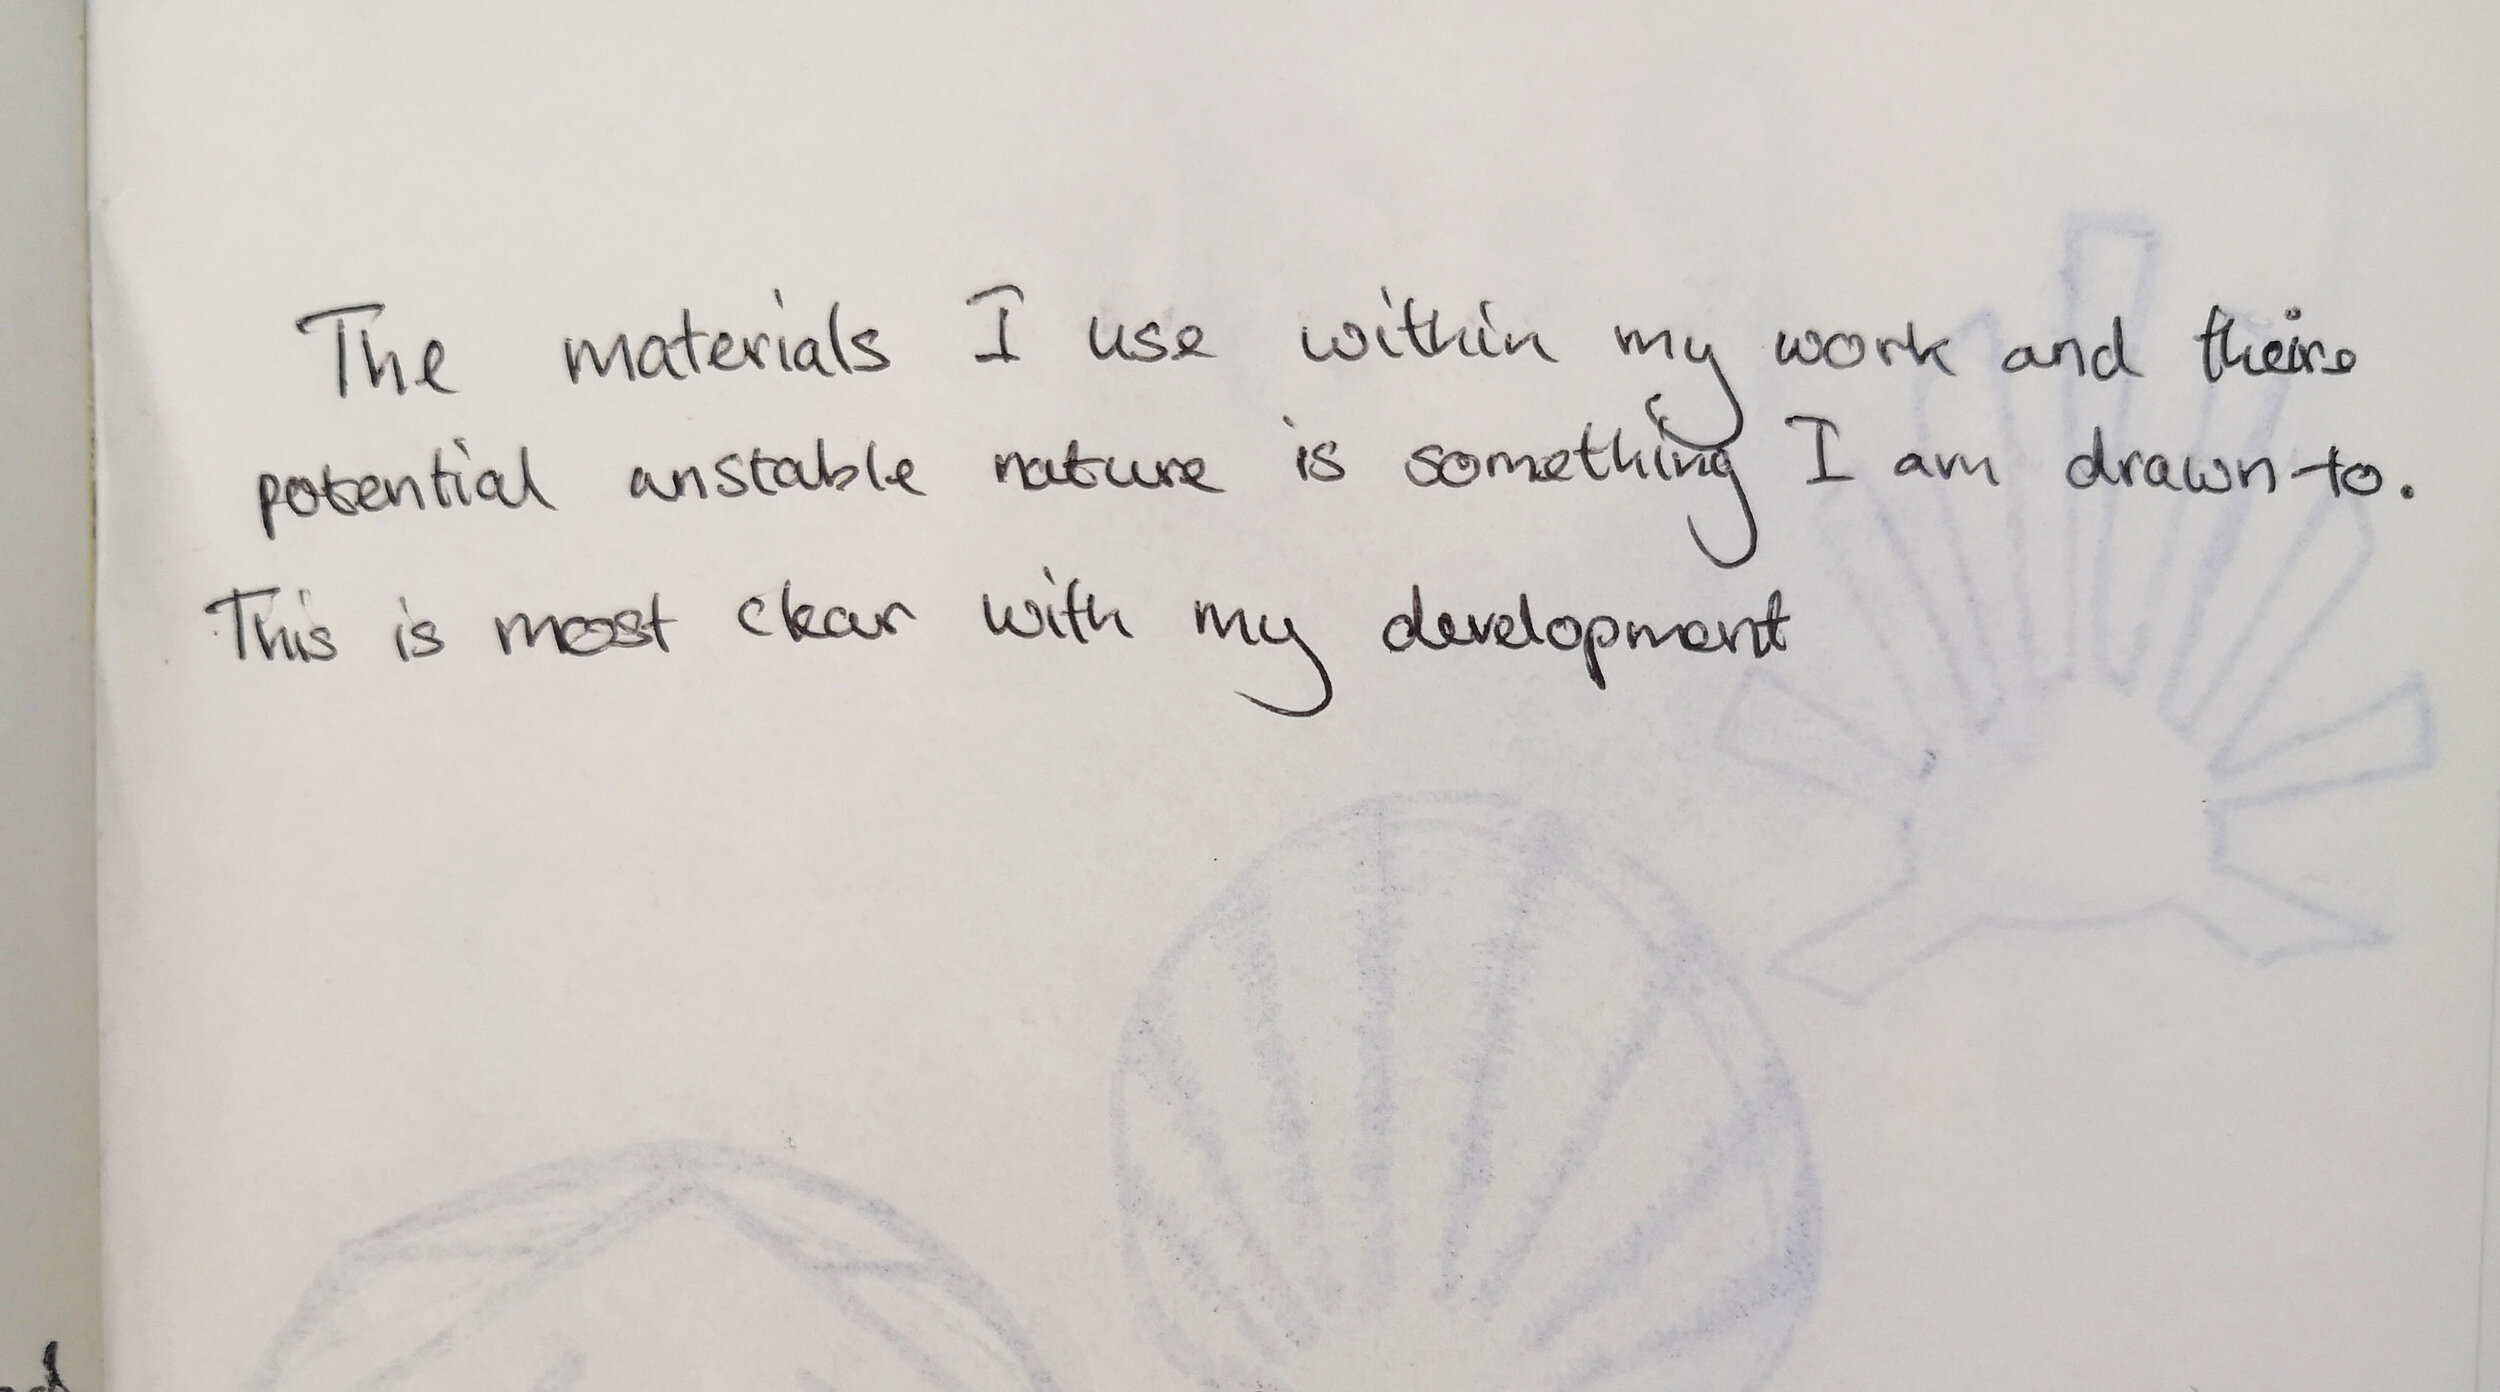 The materials I use within my work and theire
potential anstable nature is something I am drawn to.
This is most clear with my development